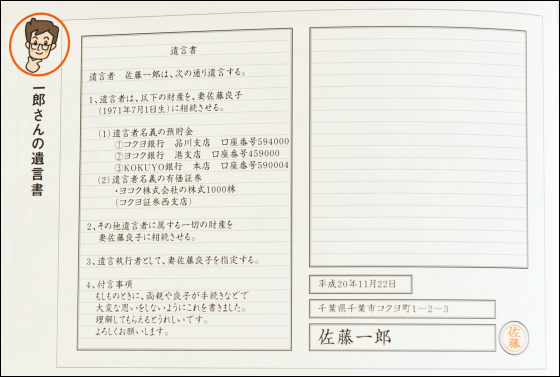 一郎さんの遺言書
遺言書
遺言者 佐藤一郎は、次の通り遺言する。
1、遺言者は、以下の財産を、妻佐藤良子
(1971年7月1日生)に相続させる。
(1)遺言者名義の預貯金
①コクヨ銀行 品川支店 口座番号594000
②ヨコク銀行 港支店 口座番号459000
③KOKUYO銀行 本店 口座番号590004
(2)遺言者名義の有価証券
・ヨコク株式会社の株式1000株
(コクヨ証券西支店)
2、その他遺言者に属する一切の財産を
妻佐藤良子に相続させる。
3、遺言執行者として、妻佐藤良子を指定する。
4、付言事項
もしものときに、両親や良子が手続きなどで
大変な思いをしないようにこれを書きました。
理解してもらえるとうれしいです。
よろしくお願いします。
平成20年11月22日
千葉県千葉市コクヨ町1-2-3
佐藤一郎
佐藤